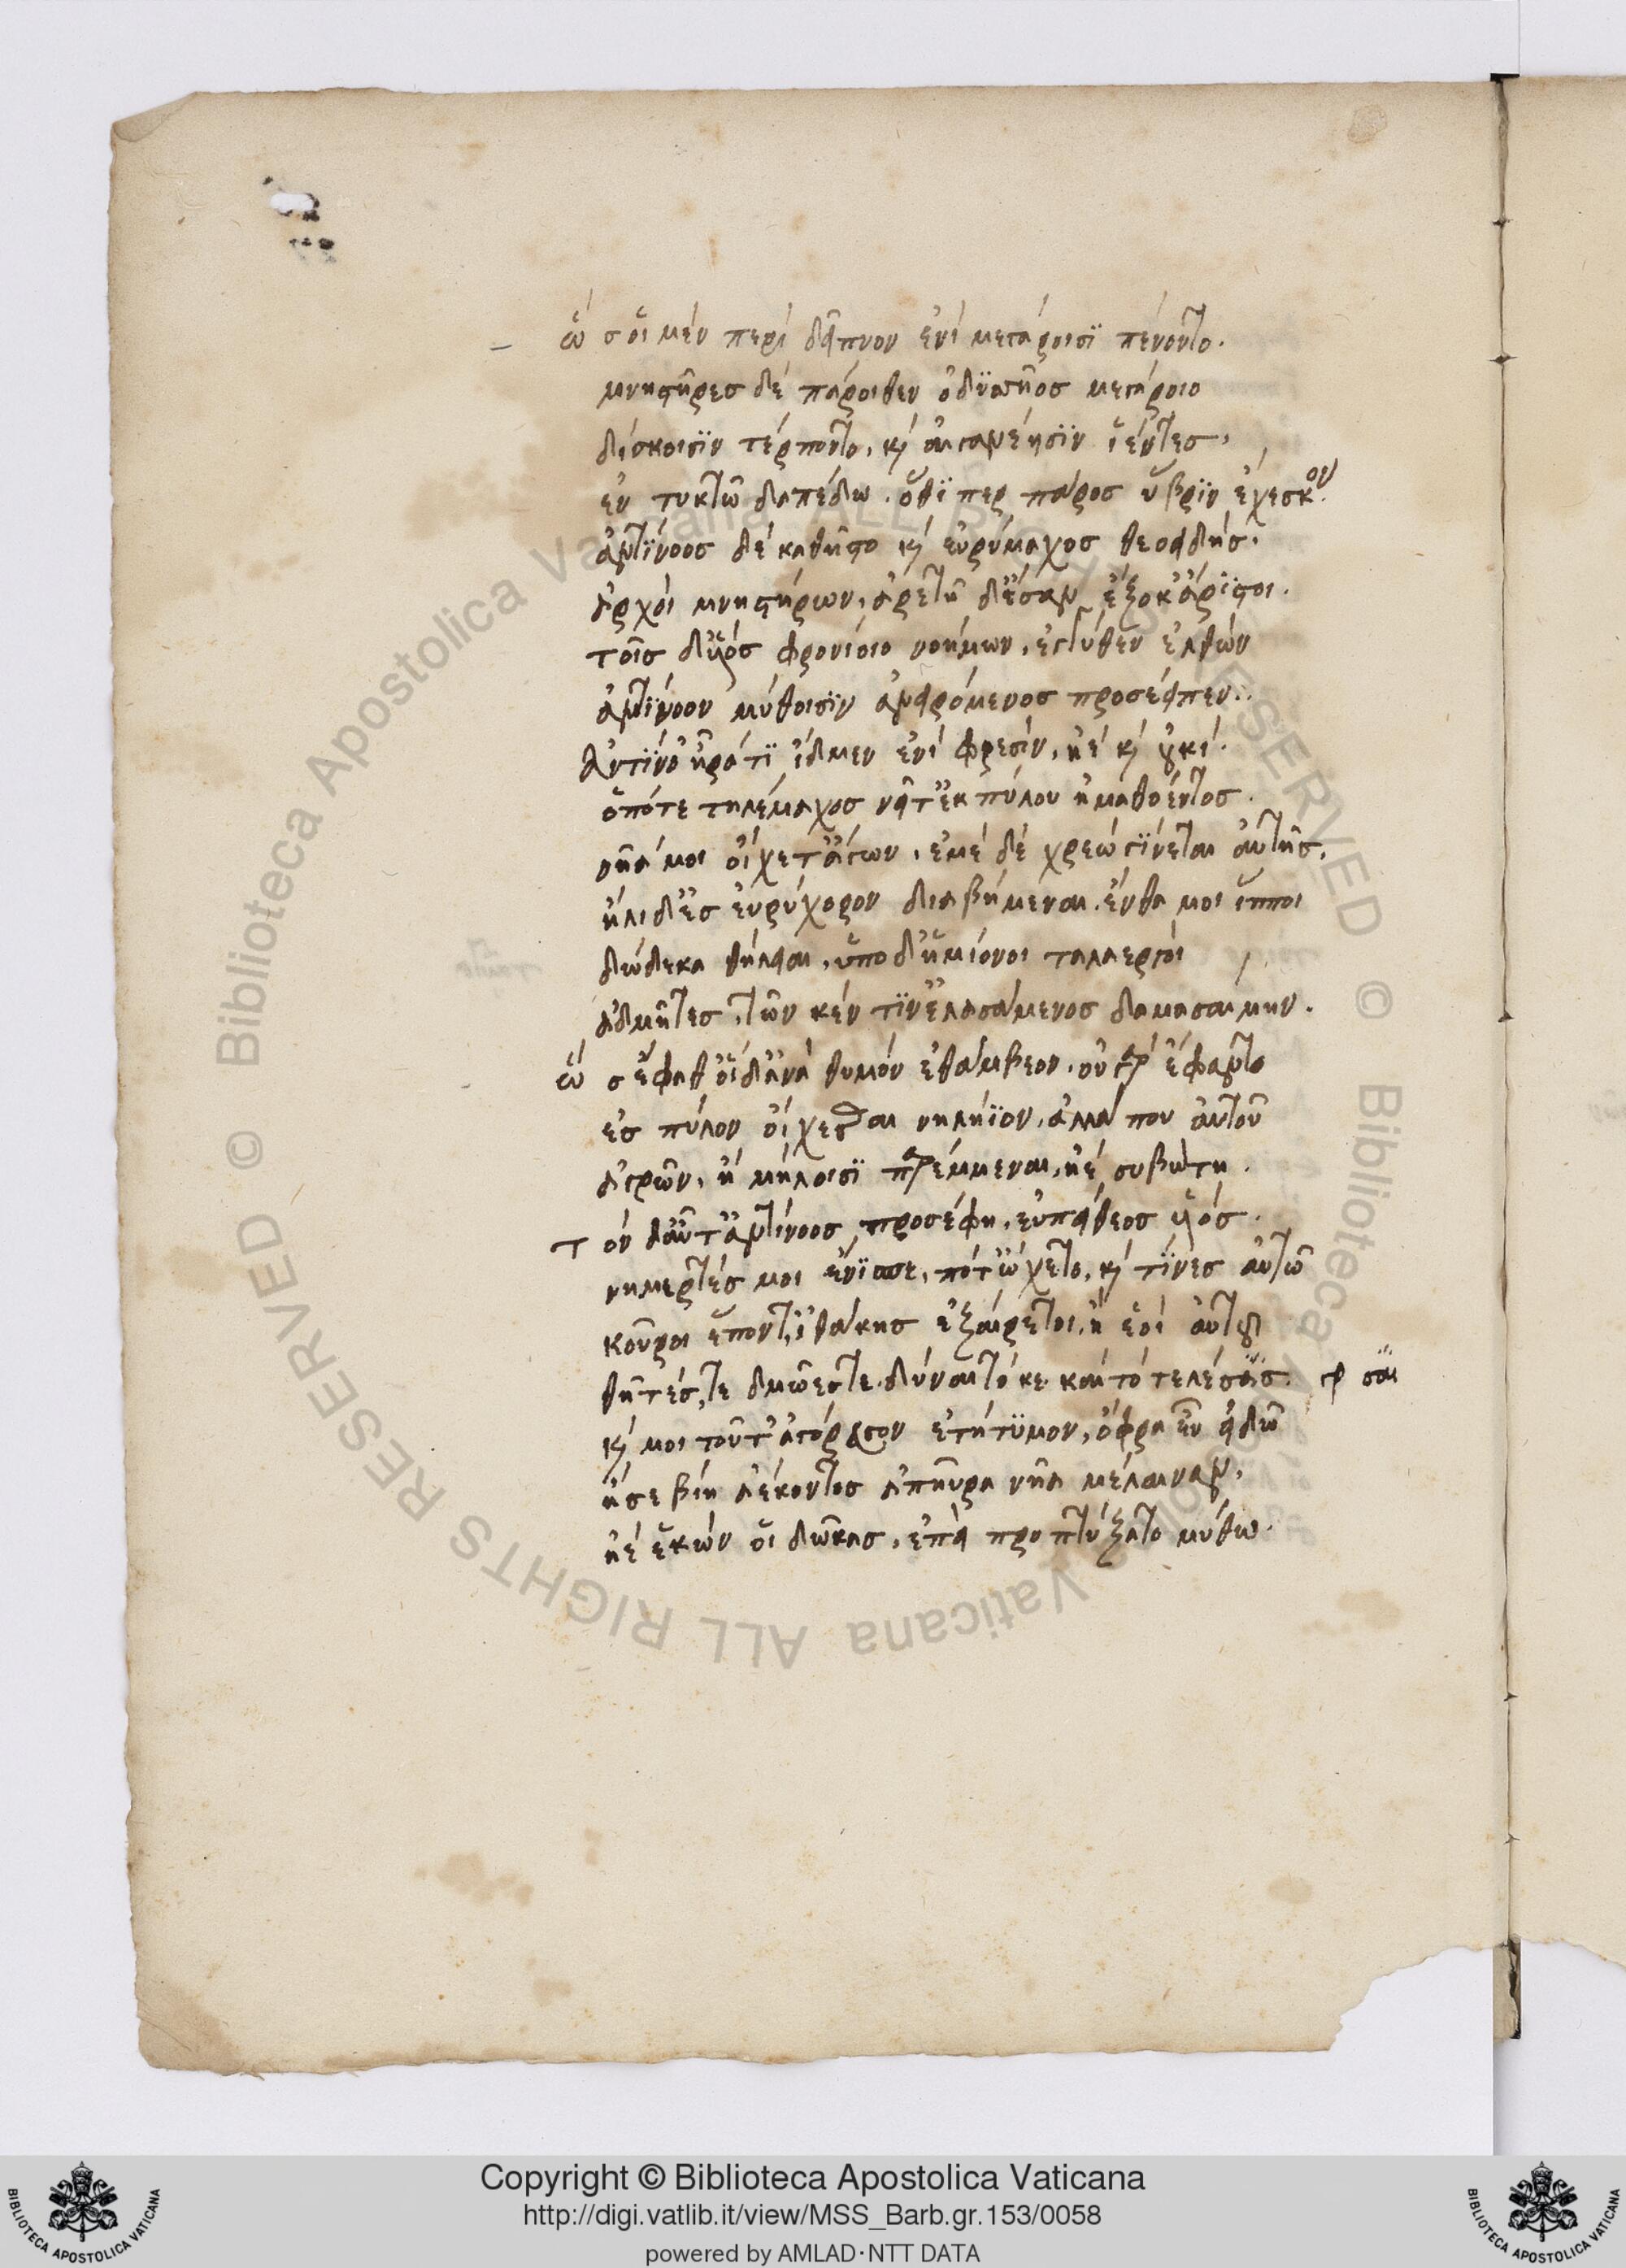 ὣς οἱ μὲν περὶ δεῖπνον ἐνὶ μεγάροισϊ πένοντο.
μνηστῆρες δὲ πάροιθεν ὀδϋσσῆος μεγάροιο
δίσκοισϊν τέρποντο, καὶ αἰγανέησϊν ϊέντες,
ἐν τυκτῶ δαπέδω. ὅθϊ περ πάρος ὕβρϊν ἔχεσκον.
ἀντϊνοος δὲ καθῆστο καὶ εὐρύμαχος θεοειδής.
ἀρχοὶ μνηστήρων, ἀρετῆ δ' ἔσαν ἔξοχ' ἄρϊστοι.
τοῖς δ' υἱὸς φρονίοιο νοήμων, ἐγγύθεν ἐλθὼν
ἀντϊνοον μύθοισϊν ἀνειρόμενος προσέειπεν.
Ἀντϊνο' ἦ ρά τϊ ἴδμεν ἐνὶ φρεσὶν, ἠὲ καὶ οὐκί.
ὁπότε τηλέμαχος νεῖτ' ἐκ πύλου ἠμαθόεντος.
νῆα μοι οἴχετ' ἄγων, ἐμὲ δὲ χρεὼ γϊνεται αὐτῆς,
ἤλιδ' ἐς εὐρύχορον διαβήμεναι. ἔνθα μοι ἵπποι
δώδεκα θήλειαι, ὑπο δ' ἡμίονοι ταλαεργοὶ
ἀδμῆτες, τῶν κέν τϊν' ἐλασάμενος δαμασαιμην.
ὣς ἔφαθ' οἱ δ' ἀνὰ θυμὸν ἐθάμβεον. οὐ γὰρ ἔφαντο
ἐς πύλον οἴχεσθαι νηλήϊον, ἀλλά που αὐτοῦ
ἀγρῶν, ἢ μήλοισϊ παρέμμεναι, ἠὲ συβώτη.
τὸν δ' αὖτ' ἀντϊνοος προσέφη, εὐπείθεος υἱός.
νημερτές μοι ἔνϊσπε, πότ' ὤχετο, καὶ τϊνες αὐτῶ
κοῦροι ἕποντ', ἰθάκης ἐξαίρετοι, ἢ ἑοὶ αὐτοῦ
θῆτές, τε δμῶές τε. δύναιτό κε καὶ τὸ τελέσαις. γρ σαι
καί μοι τοῦτ' ἀγόρευσον ἐτήτϋμον, ὄφρα εὖ εἰδῶ
ἤ σε βίη ἀέκοντος ἀπηύρα νῆα μέλαιναν,
ἠὲ ἑκών οἱ δῶκας, ἐπεὶ προπτύξατο μύθω.
Copyright © Biblioteca Apostolica Vaticana
http://digi.vatlib.it/view/MSS_Barb.gr.153/0058
powered by AMLAD·NTT DATA
BIBLIOTECA APOSTOLICA VATICANA
BIBLIOTECA APOSTOLICA VATICANA
© Biblioteca Apostolica Vaticana ALL RIGHTS RESERVED © Biblioteca Apostolica Vaticana ALL RIGHTS RESERVED